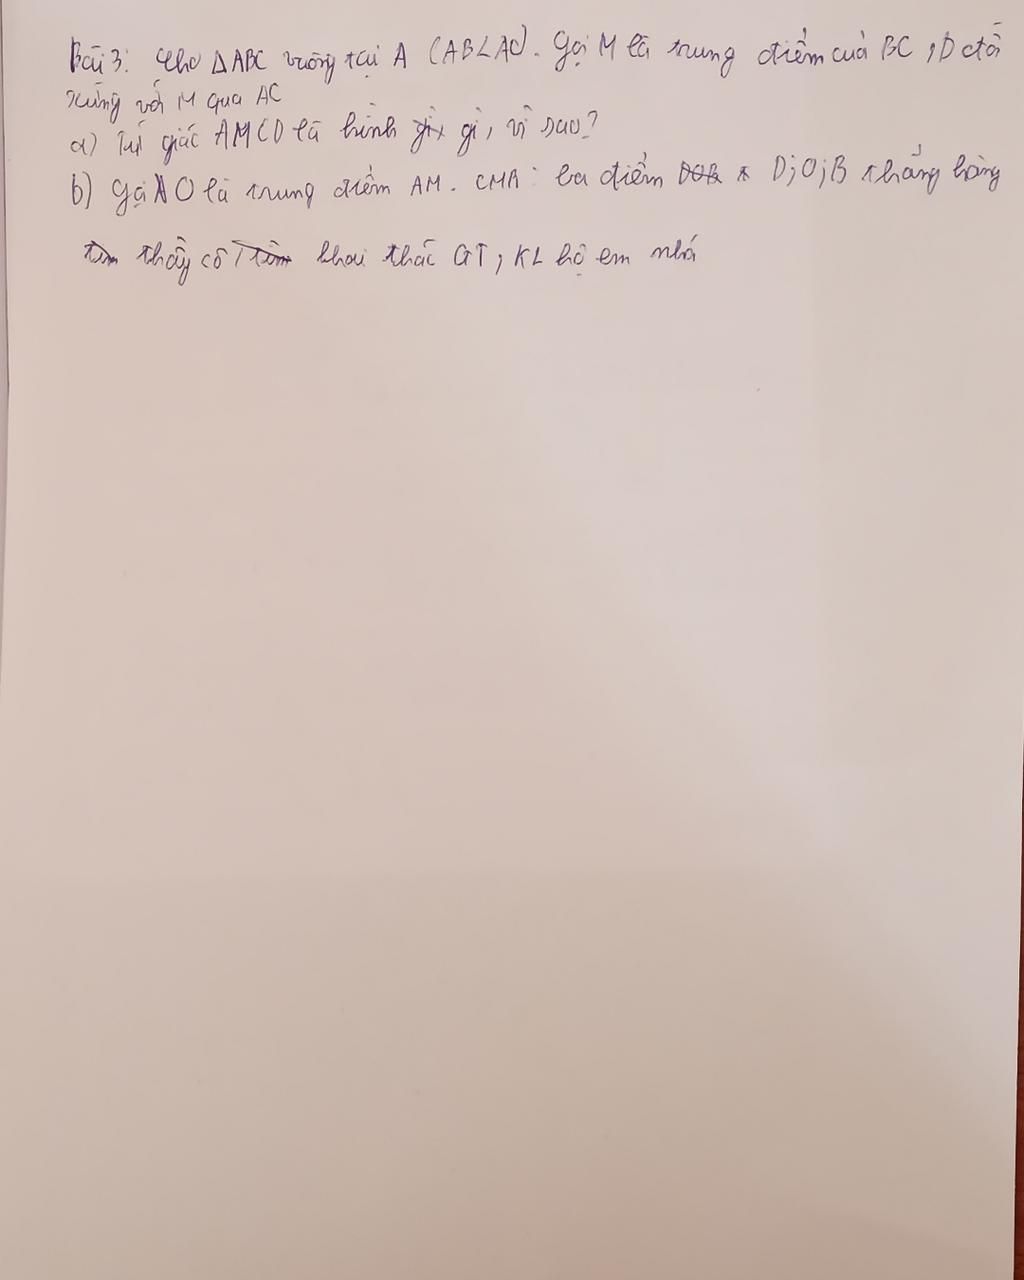 Bài 3: Cho ΔABC vuông tại A (AB<AC). Gọi M là trung điểm của BC, D đối
xứng với M qua AC
a) Tứ giác AMCD là hình gì, vì sao?
b) Gọi O là trung điểm AM. CMR: ba điểm D;O;B thẳng hàng
thầy cô khai thác GT, KL hộ em nhá